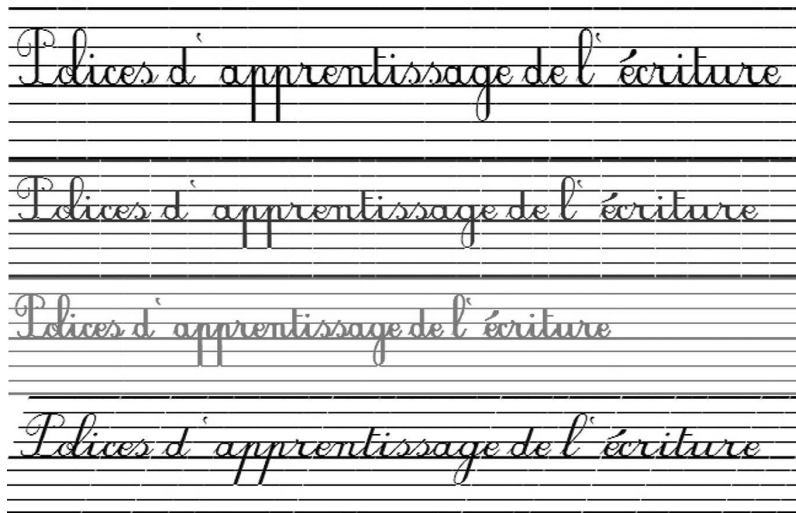 Polices d'apprentissage de l'écriture
Polices d'apprentissage de l'écriture
Polices d'apprentissage de l'écriture
Polices d'apprentissage de l'écriture